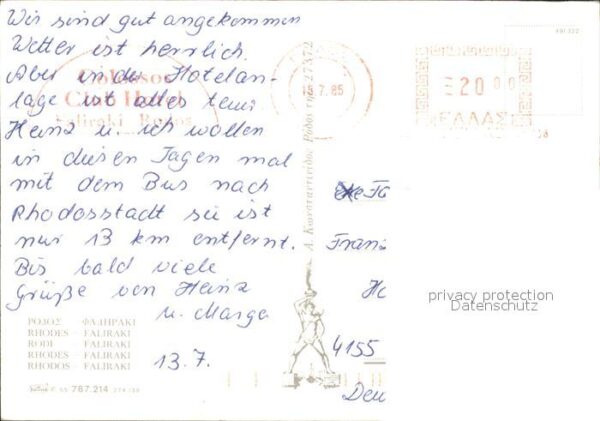 Wir sind gut angekommen
Wetter ist herrlich.
Aber in der Hotelan-
lage ist alles teuer
Heinz u. ich wollen
in diesen Tagen mal
mit dem Bus nach
Rhodosstadt sie ist
nur 13 km entfernt.
Bis bald viele
Grüße von Heinz
u. Marga
13.7.
Colossos
Club Hotel
Faliraki Rodos
.7.85
20 00
ΕΛΛΑΣ
Fa
Franz
4155
privacy protection
Datenschutz
ΡΟΔΟΣ - ΦΑΛΗΡΑΚΙ
RHODES - FALIRAKI
RODI - FALIRAKI
RHODES - FALIRAKI
RHODOS - FALIRAKI
787.214